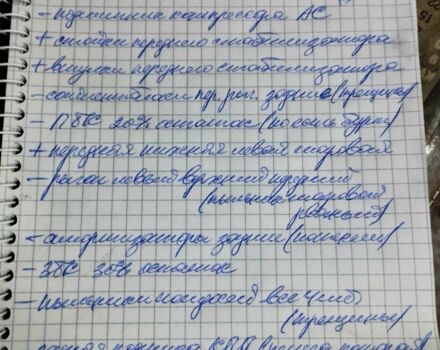 - подшипник компрессора АС
+ стойки переднего стабилизатора
+ втулки переднего стабилизатора
- сайлентблоки пер. рыч. задние (трещины)
- ПТК 20% остаток (по кольц бурты)
+ передняя нижняя левая шаровая
- рычаг левый верхний передний
(пыльник шаровой
рваный)
- амортизаторы задние (потеют)
- ЗТК 30% остаток
- пыльники все 4 шт
(трещины)